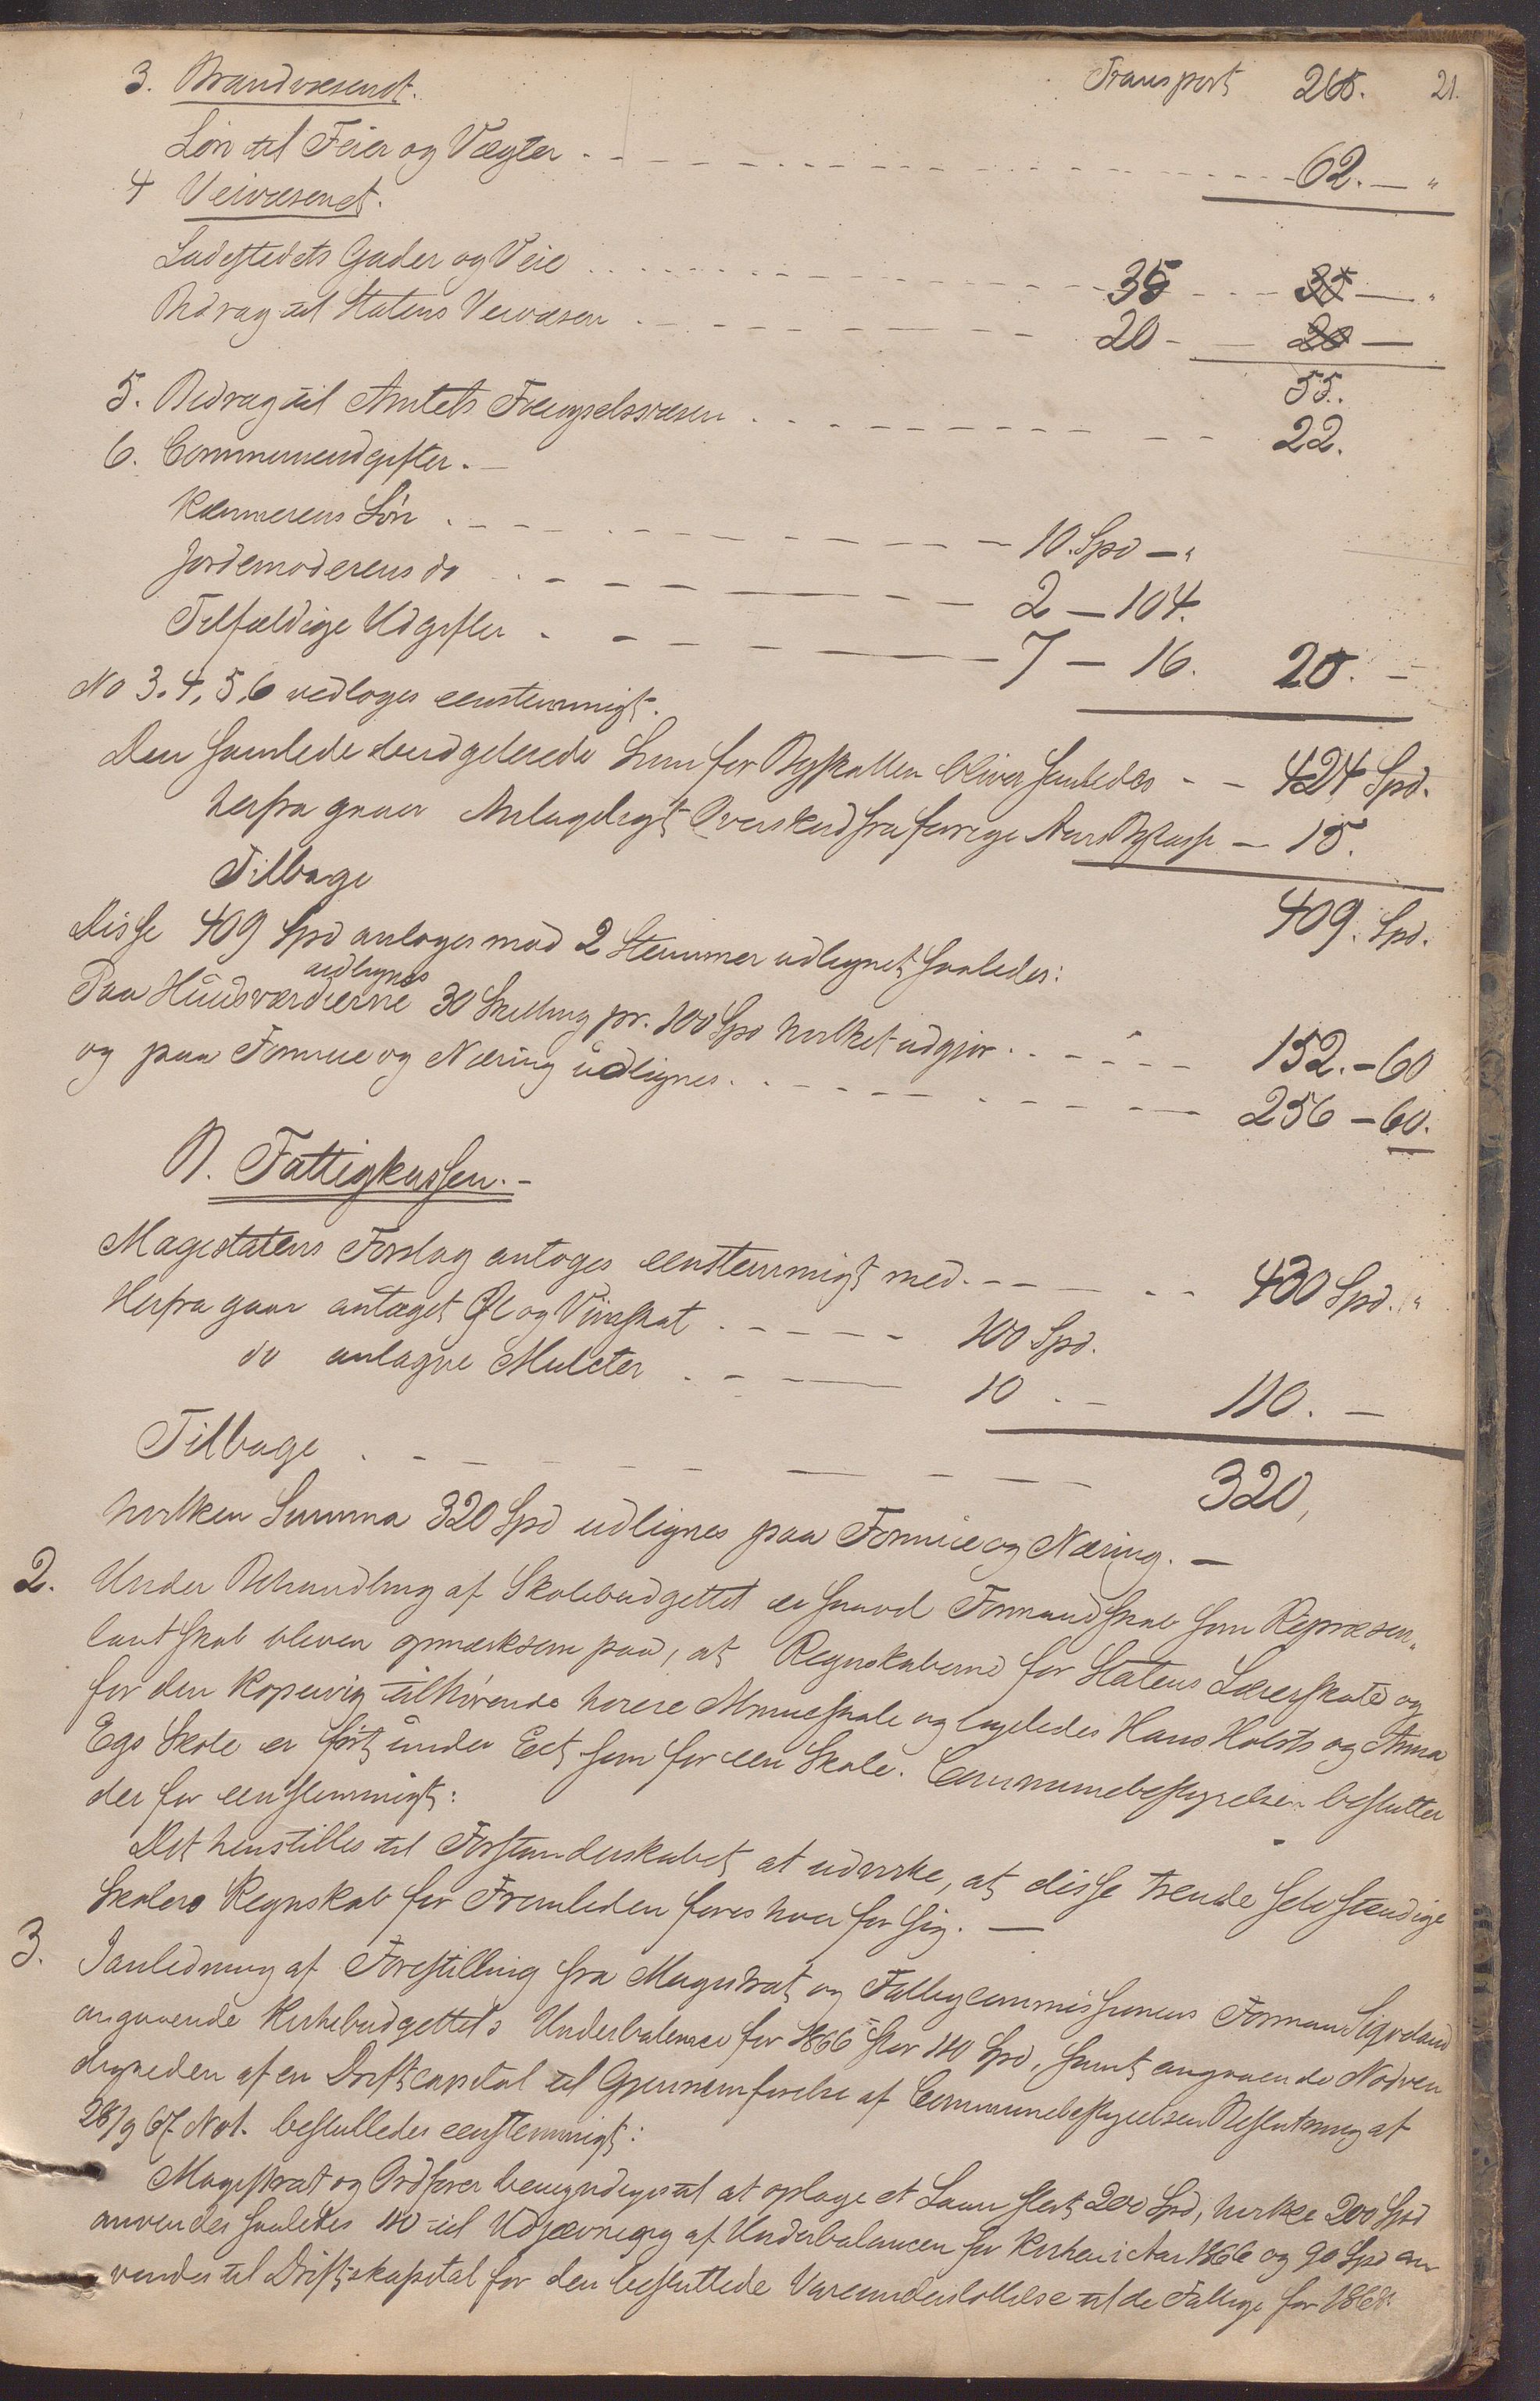 3. Brandvæsenet. Transport 265. 21.
Løn til Feier og Vægter 62. — "
4 Veivæsenet.
Ladestedets Gader og Veie 35 — 35 — "
Bidrag til Statens Veivæsen 20 — 20 —
55.
5. Bidrag til Amtets Fængselsvæsen 22.
6. Communeudgifter. —
Kæmnerens Løn 10. Spd — "
Jordemoderens do 2 — 104.
Tilfældige Udgifter 7 — 16. 20. —
No 3. 4, 5, 6 vedtoges eenstemmigt.
Den samlede budgeterede Sum for Byskatten bliver saaledes — 424 Spd.
herfra gaaer Antageligt Overskud fra forrige Aars Bykasse — 15.
Tilbage 409. Spd.
Disse 409 Spd antoges mod 2 Stemmer udlignet saaledes:
udlignes
Paa Huusværdierne 30 Skilling pr. 100 Spd hvilket udgjør 152. — 60
og paa Formue og Næring udlignes 256 — 60.
B. Fattigkassen. —
Magistratens Forslag antoges eenstemmigt med 430 Spd. "
Herfra gaar antaget Øl og Viinskat 100 Spd.
do antagne Mulcter 10 — 110. —
Tilbage 320,
hvilken Summa 320 Spd udlignes paa Formue og Næring. —
2. Under Behandling af Skolebudgettet er saavel Formandskab som Repræsen-
tantskab bleven opmærksom paa, at Regnskaberne for Statens Lærerskole og
for den Kopervig tilhørende høiere Almueskole og ligeledes Hans Holsts og Anna
Egs Skole er ført under Eet som for een Skole. Communebestyrelsen beslutter
derfor eenstemmigt:
Det henstilles til Forstanderskabet at udvirke, at disse trende selvstændige
Skolers Regnskab for Fremtiden føres hver for sig. —
3. I anledning af Forestilling fra Magistrat og Fattigcommissionens Formand Sigvaland
angaaende Kirkebudgettets Underbalance for 1866 stor 110 Spd, samt angaaende Nødven
digheden af en Driftcapital til Gjennemførelse af Communebestyrelsens Beslutning af
28/9 67. No 1. besluttedes eenstemmigt:
Magistrat og Ordfører bemyndiges til at optage et Laan stort 200 Spd, hvilke 200 Spd
anvendes saaledes 110 til Udjævning af Underbalancen for Kirken i Aar 1866 og 90 Spd an
vendes til Driftskapital for den besluttede Vareunderstøttelse til de Fattige for 1868.